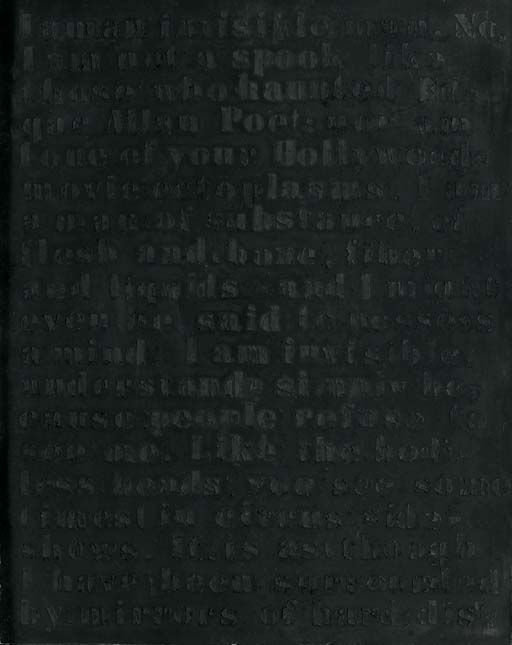 I am an invisible man. No,
I am not a spook like
those who haunted Ed-
gar Allan Poe; nor am
I one of your Hollywood-
movie ectoplasms. I am
a man of substance, of
flesh and bone, fiber
and liquids - and I might
even be said to possess
a mind. I am invisible,
understand, simply be-
cause people refuse to
see me. Like the bodi-
less heads you see some
times in circus side-
shows, it is as though
I have been surrounded
by mirrors of hard, dis-